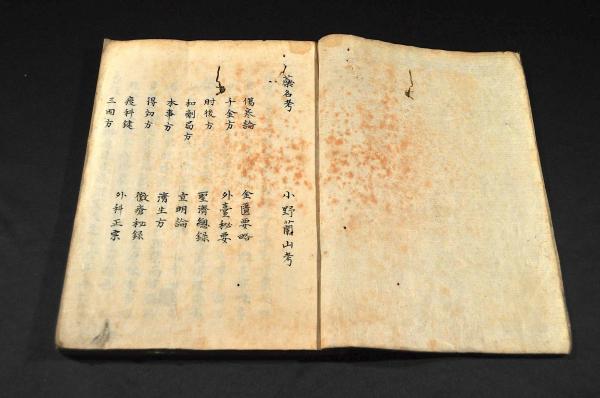 藥名考 小野蘭山考
傷寒論 金匱要略
千金方 外臺秘要
肘後方 聖濟總録
和劑局方 宣明論
本事方 濟生方
得効方 黴瘡秘録
痘科鍵 外科正宗
三因方